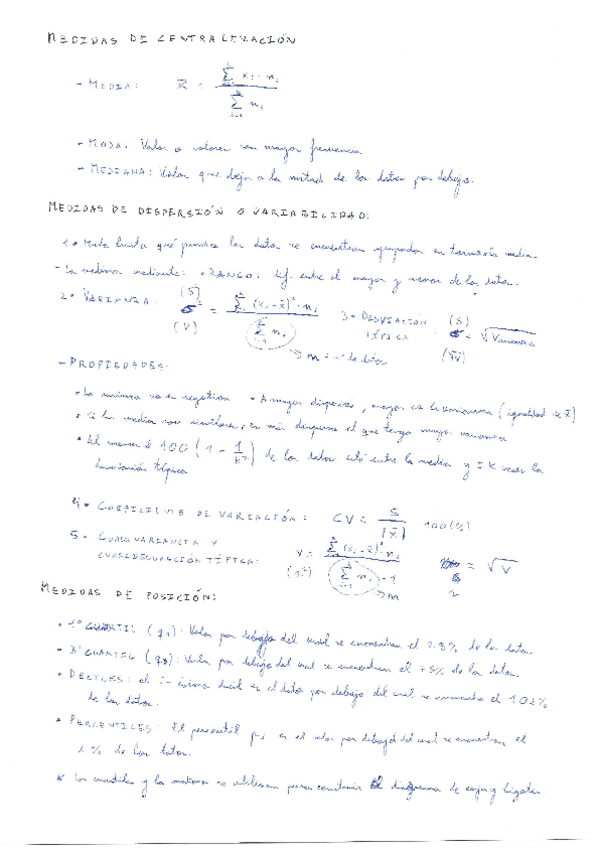 MEDIDAS DE CENTRALIZACIÓN
- MEDIA: x̄ = Σ xᵢ · nᵢ / Σ nᵢ
- MODA: Valor o valores con mayor frecuencia
- MEDIANA: Valor que deja a la mitad de los datos por debajo.
MEDIDAS DE DISPERSIÓN O VARIABILIDAD:
1 • Mide hasta qué punto los datos se encuentran agrupados en torno a la media.
- Se mediante: • RANGO: dif. entre el mayor y menor de los datos.
2 • VARIANZA: (S) σ² = Σ (xᵢ - x̄)² · nᵢ / Σ nᵢ (V)
→ n = nº de datos
3 • DESVIACIÓN TÍPICA (S) σ = √Varianza (√V)
- PROPIEDADES:
• La varianza no es negativa • A mayor dispersión, mayor es la varianza (igualdad de x̄)
• Si las medias son similares, es más disperso el que tenga mayor varianza
• Al menos el 100 (1 - 1/k²) de los datos está entre la media y ± K veces la
desviación típica
4 • COEFICIENTE DE VARIACIÓN: CV = S / |x̄| 100 (%)
5 • CUASIVARIANZA Y
CUASIDESVIACIÓN TÍPICA: V = Σ (xᵢ - x̄)² nᵢ / Σ nᵢ - 1 = √V
→ n
MEDIDAS DE POSICIÓN:
• 1º CUARTIL (q₁): Valor por debajo del cual se encuentran el 25% de los datos.
• 3º CUARTIL (q₃): Valor por debajo del cual se encuentran el 75% de los datos.
• DECILES: el i-ésimo decil es el dato por debajo del cual se encuentra el 10i%
de los datos.
• PERCENTILES: El percentil es el valor por debajo del cual se encuentran el
i % de los datos.
* Los cuartiles y la mediana se utilizan para construir el diagrama de caja y bigotes.